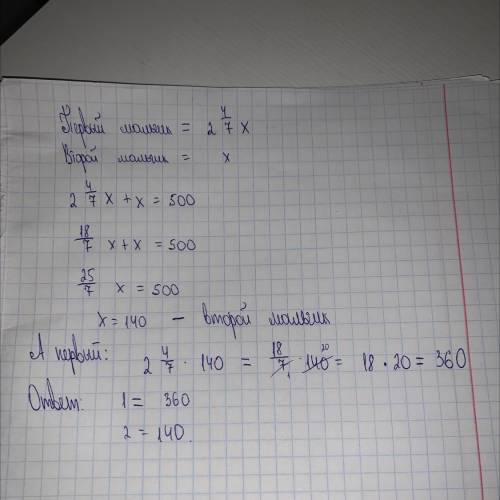 Первый мальчик = 2 4/7 x
Второй мальчик = x
2 4/7 x + x = 500
18/7 x + x = 500
25/7 x = 500
x = 140 – второй мальчик
А первый: 2 4/7 · 140 = 18/7 · 140 = 18 · 20 = 360
Ответ: 1 = 360
2 = 140.